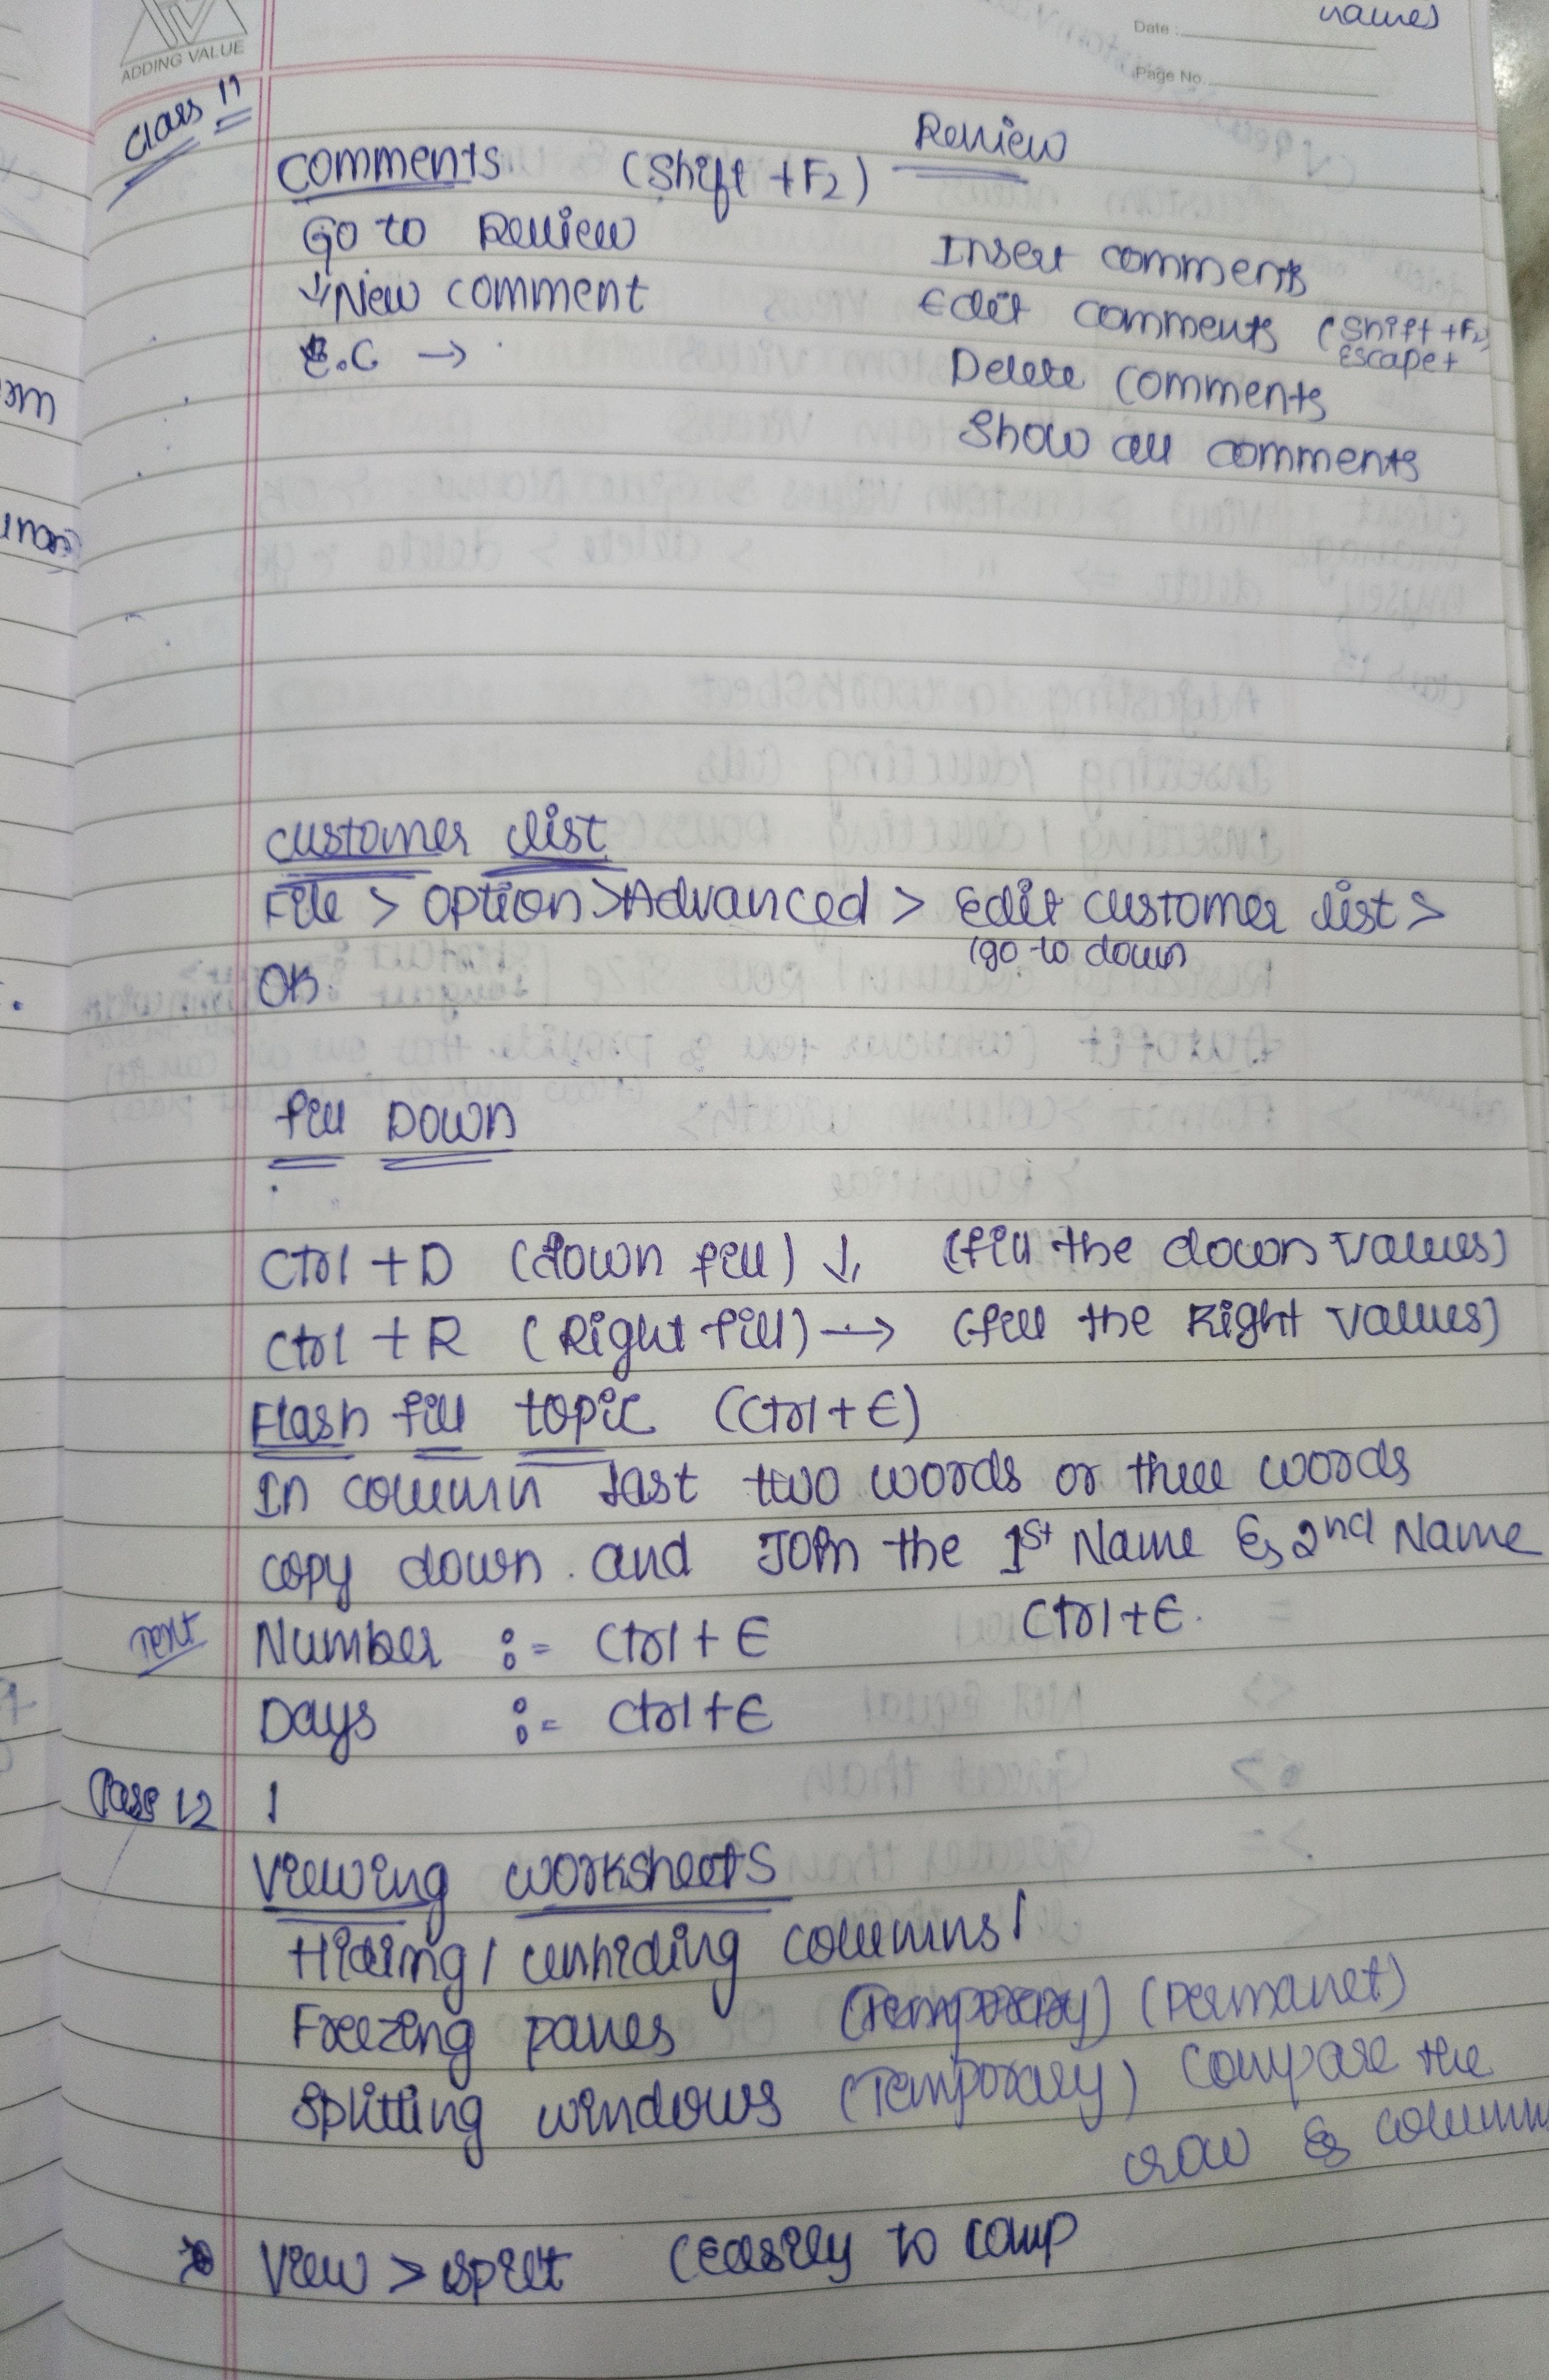 ADDING VALUE
Date :
names
Page No.
Class 11
Comments (Shift + F2) Review
Go to Review
Insert comments
↓ New comment
Edit comments (Shift + F2)
Escape+
E.G →
Delete comments
Show all comments
Customer list
File > option > Advanced > Edit customer list >
(go to down
OK.
Fill Down
Ctrl + D (down fill) ↓, (fill the down values)
Ctrl + R (Right fill) → (fill the Right values)
Flash fill topic (Ctrl + E)
In column last two words or three words
copy down. and Join the 1st Name & 2nd Name
Ctrl + E.
Text Number := Ctrl + E
Days := Ctrl + E
Class 12
Viewing worksheets
Hiding / unhiding columns /
Freezing panes (Temporary) (permanet)
Splitting windows (Temporary) Compare the
row & column
View > split (Easily to comp